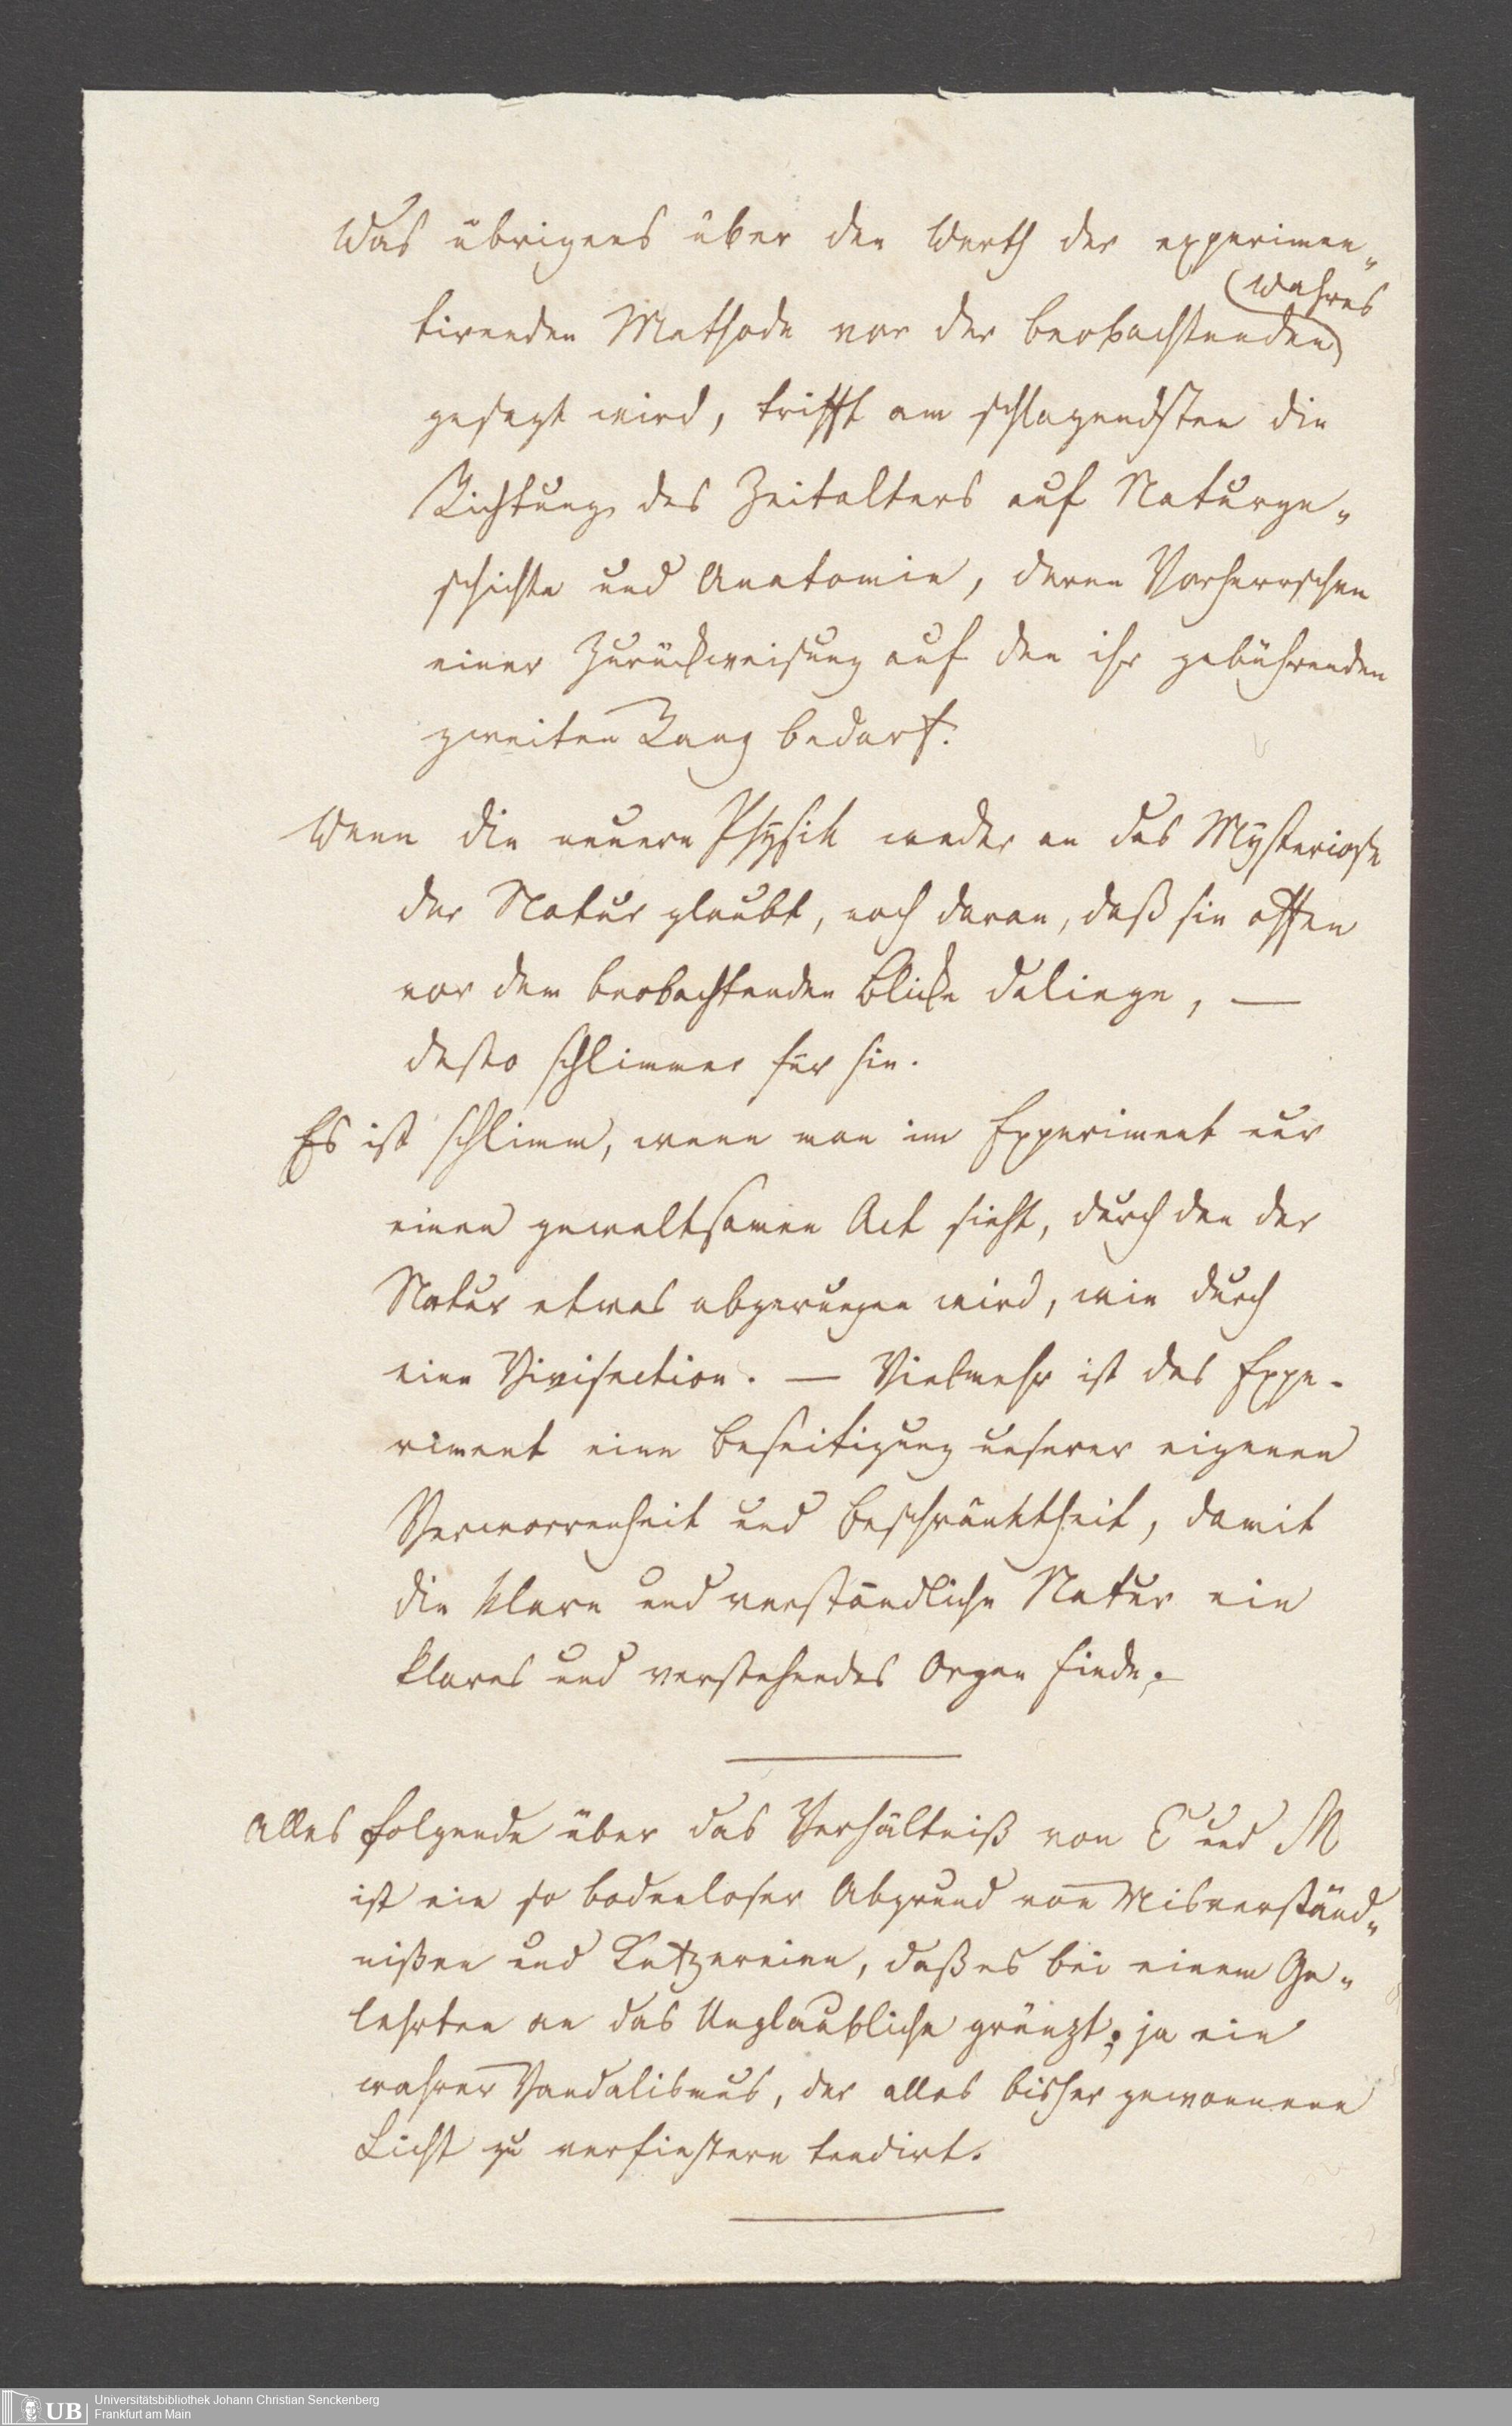 Was übrigens über den Werth der experimen„
wahres
tirenden Methode vor der beobachtenden
gesagt wird, trifft am schlagendsten die
Richtung des Zeitalters auf Naturge„
schichte und Anatomie, deren Vorherrschen
einer Zurückweisung auf den ihr gebührenden
zweiten Rang bedarf.
Wenn die neuere Physik weder an das Mysteriose
der Natur glaubt, noch daran, daß sie offen
vor dem beobachtenden Blicke daliege, —
desto schlimmer für sie.
Es ist schlimm, wenn man im Experiment nur
einen gewaltsamen Act sieht, durch den der
Natur etwas abgerungen wird, wie durch
eine Vivisection. — Vielmehr ist das Expe-
riment eine Beseitigung unserer eigenen
Verworrenheit und Beschränktheit, damit
die klare und verständliche Natur ein
klares und verstehendes Organ finde.—
Alles folgende über das Verhältniß von E und M
ist ein so bodenloser Abgrund von Misverständ„
nißen und Ketzereien, daß es bei einem Ge„
lehrten an das Unglaubliche gränzt; ja ein
wahrer Vandalismus, der alles bisher gewonnene
Licht zu verfinstern tendirt.
UB
Universitätsbibliothek Johann Christian Senckenberg
Frankfurt am Main